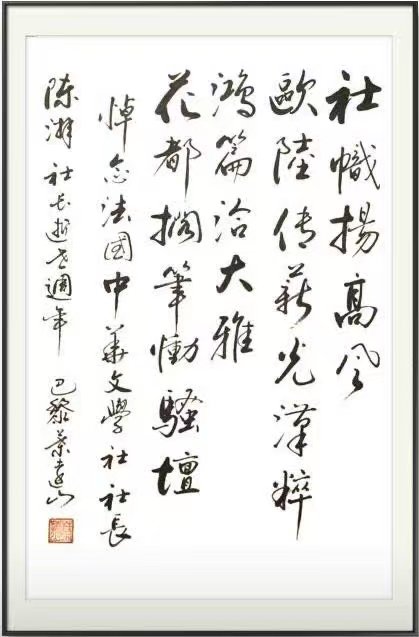 社幟揚高风
歐陸传薪光漢粹
鴻篇洽大雅
花都搁筆慟騷壇
悼念法國中華文學社社長
陈湃社长逝世週年 巴黎